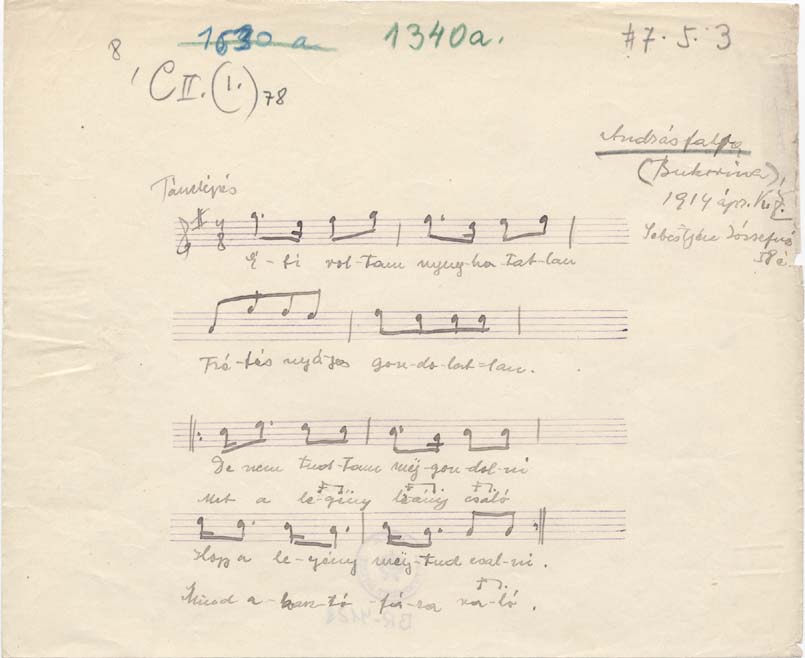 8 1630 a 1340a. #7. 5. 3
C II. (1.) 78
Andrásfalva
(Bukovina),
1914 ápr.
Tánclépés
Sebestyén Józsefné
58 é
É-fi vol-tam nyug-ha-tat-lan
Tré-fás nyá-jas gon-do-lat-lan.
De nem tud-tam mëg-gon-dol-ni
Met a le-gény leány csaló
Hogy a le-gény mëg-tud csal-ni.
Mind a-kasz-tó-fá-ra va-ló.